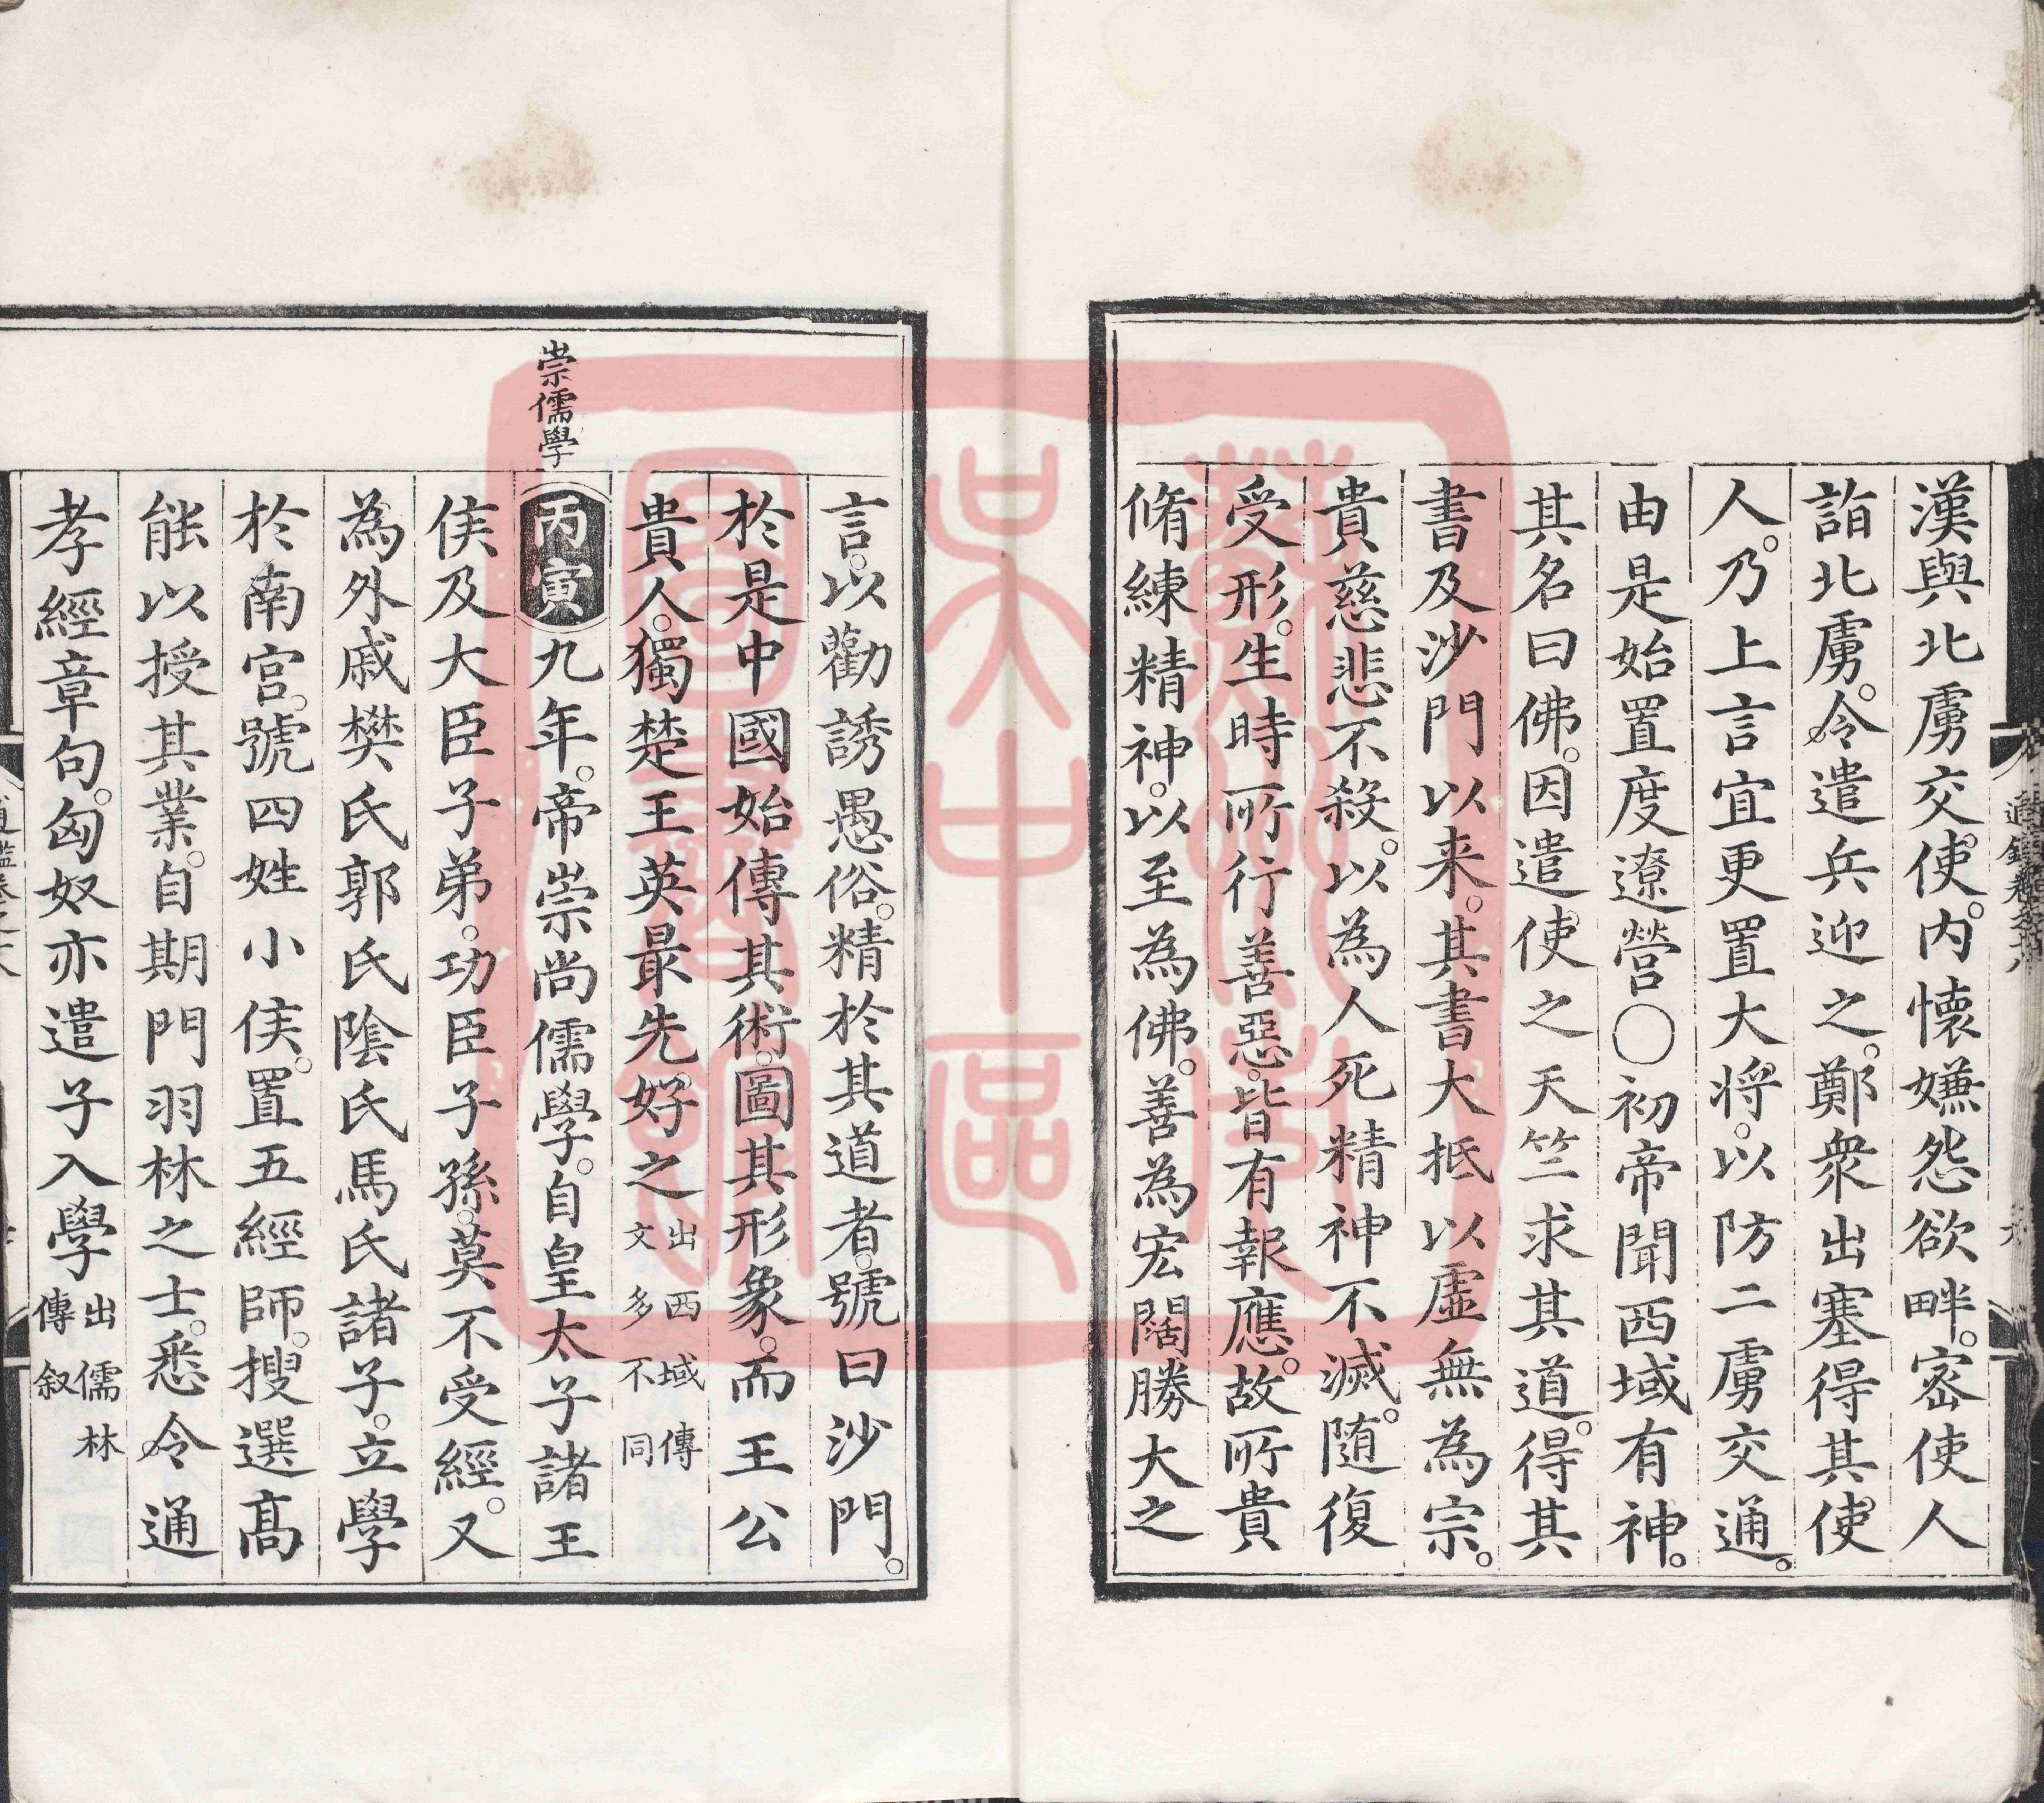 漢與北虜交使。内懷嫌怨欲畔。宻使人
詣北虜。令遣兵迎之。鄭衆出塞得其使
人。乃上言宜更置大将。以防二虜交通。
由是始置度遼營○初帝聞西域有神。
其名曰佛。因遣使之天竺求其道。得其
書及沙門以来。其書大抵以虛無為宗。
貴慈悲不殺。以為人死精神不滅。随復
受形。生時所行善惡。皆有報應。故所貴
脩練精神。以至為佛。善為宏闊勝大之
言。以勸誘愚俗。精於其道者。號曰沙門。
於是中國始傳其術。圖其形象。而王公
貴人。獨楚王英最先好之出西域傳文多不同
崇儒學
丙寅九年。帝崇尚儒學。自皇太子諸王
侯及大臣子弟。功臣子孫。莫不受經。又
為外戚樊氏郭氏陰氏馬氏諸子。立學
於南宫。號四姓小侯。置五經師。搜選髙
能以授其業。自期門羽林之士。悉令通
孝經章句。匈奴亦遣子入學出儒林傳叙